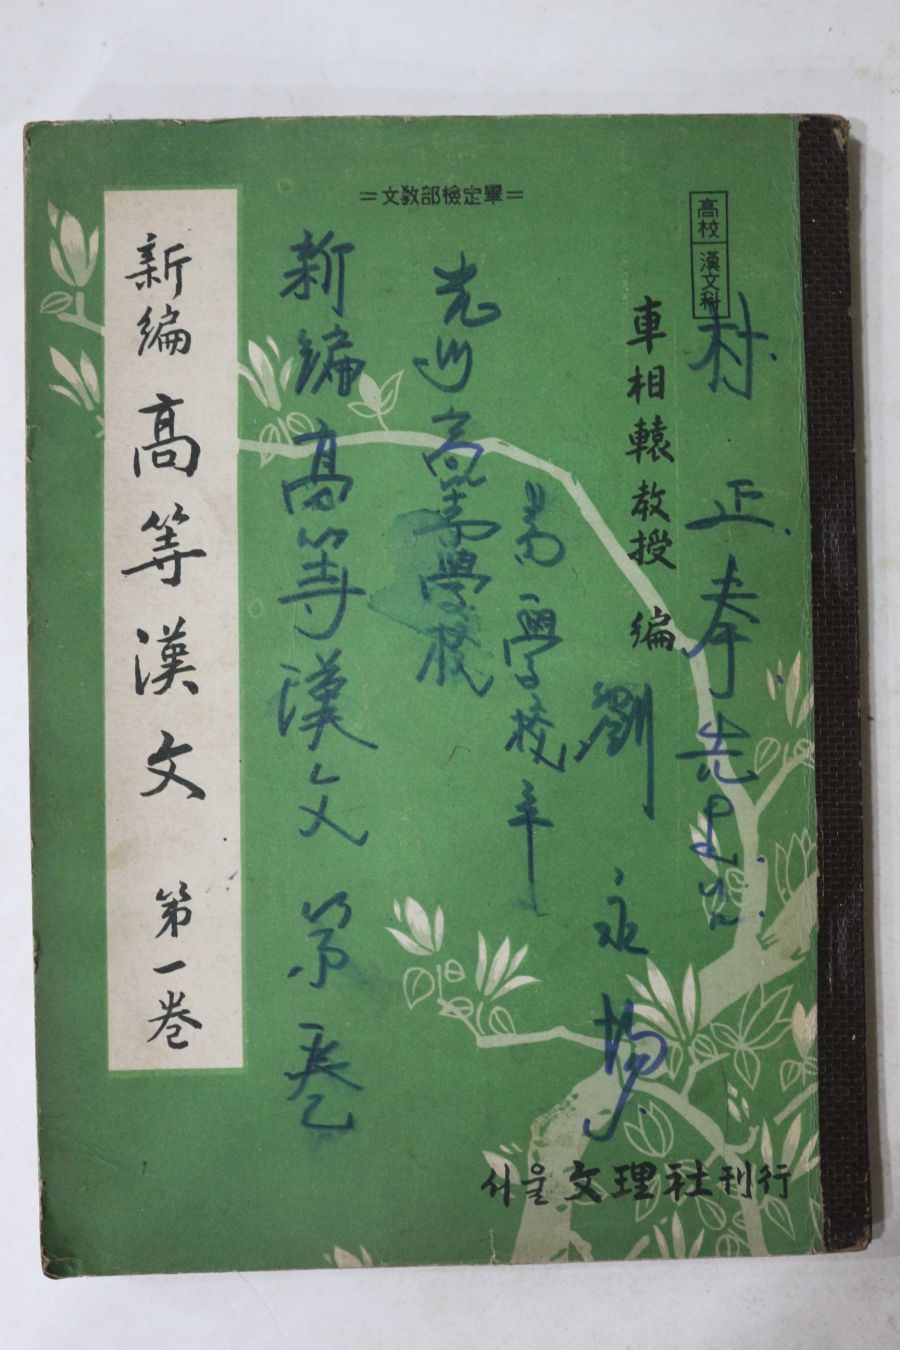 =文敎部檢定畢=
高校 漢文科
車相轅敎授 編
新編 高等漢文 第一卷
正奉先
劉永
學校
高等學校
新編高等漢文 第 卷
서울 文理社刊行